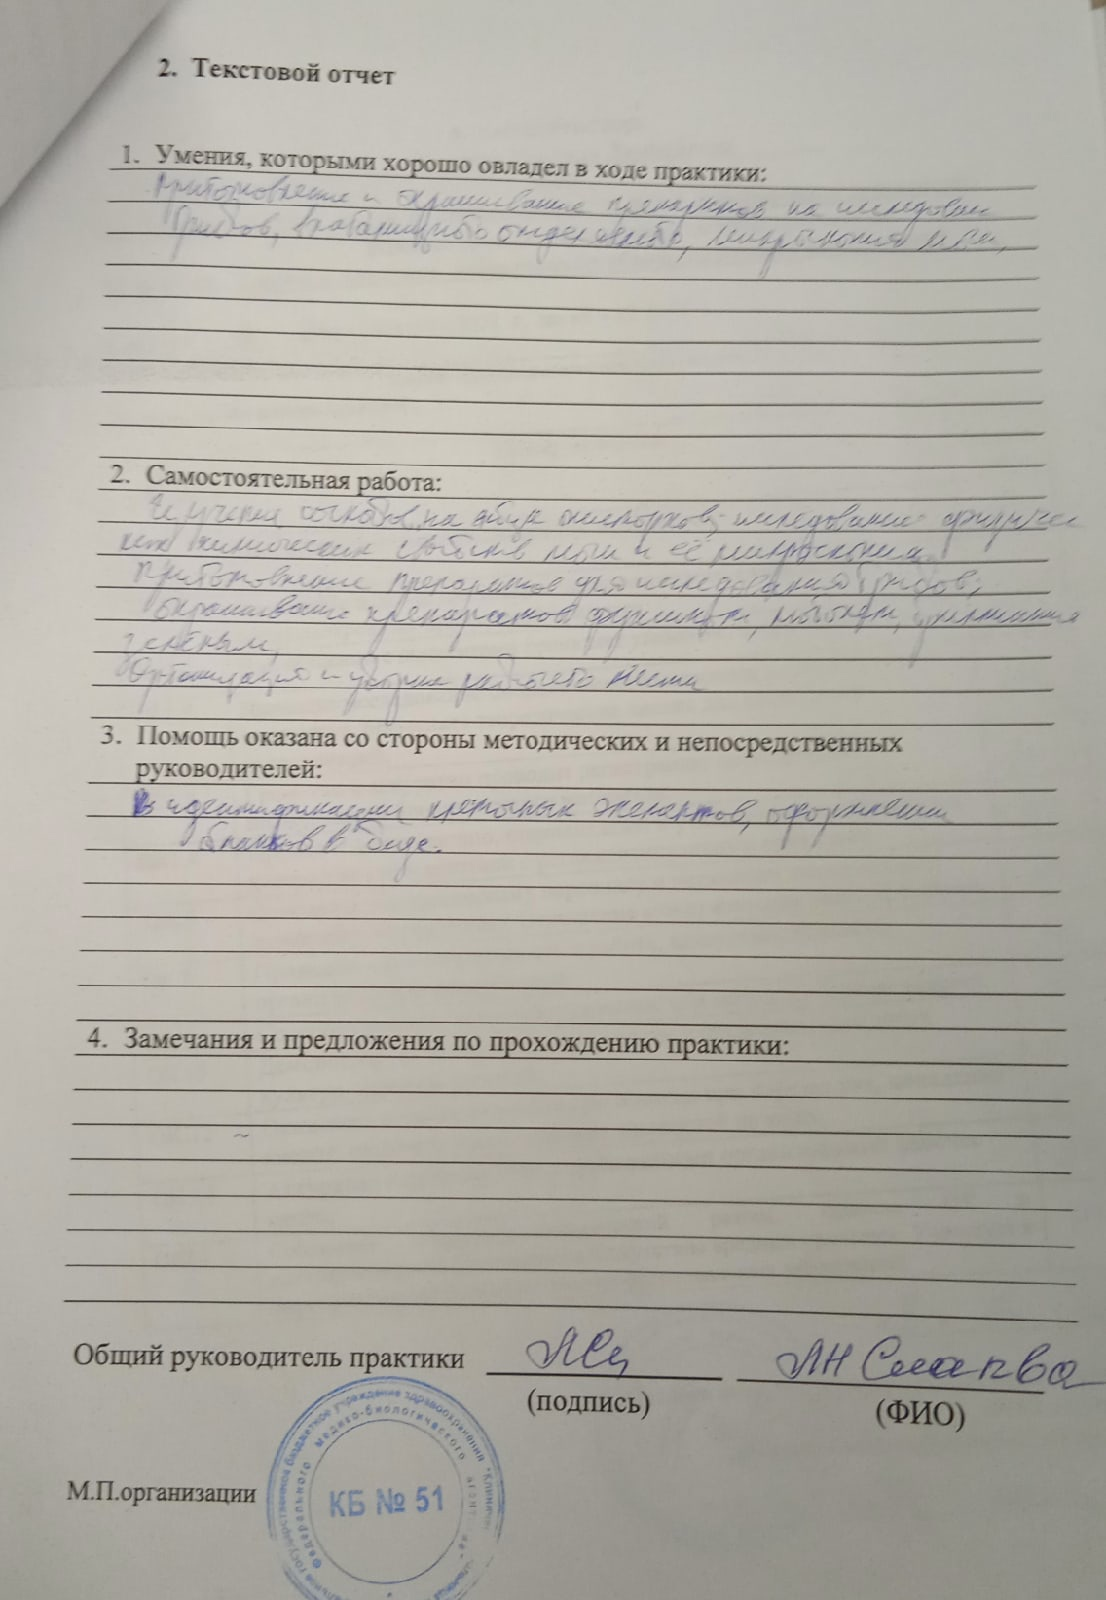 2. Текстовой отчет
1. Умения, которыми хорошо овладел в ходе практики:
Приготовление и окрашивание препаратов на исследован
Грибов, вагинального отделяемого, микроскопия мочи,
2. Самостоятельная работа:
Изучение соскобов на яйца остриц, исследование физичес
ких химических свойств мочи и её микроскопия
приготовление препаратов для исследования грибов,
окрашивание препаратов
зелёным,
Организация и уборка рабочего места
3. Помощь оказана со стороны методических и непосредственных
руководителей:
В идентификации клеточных элементов, оформлении
бланков в
4. Замечания и предложения по прохождению практики:
~
Общий руководитель практики
(подпись)
(ФИО)
М.П.организации
КБ № 51
государственное бюджетное учреждение здравоохранения "Клиничес
Федерального медико-биологического агент